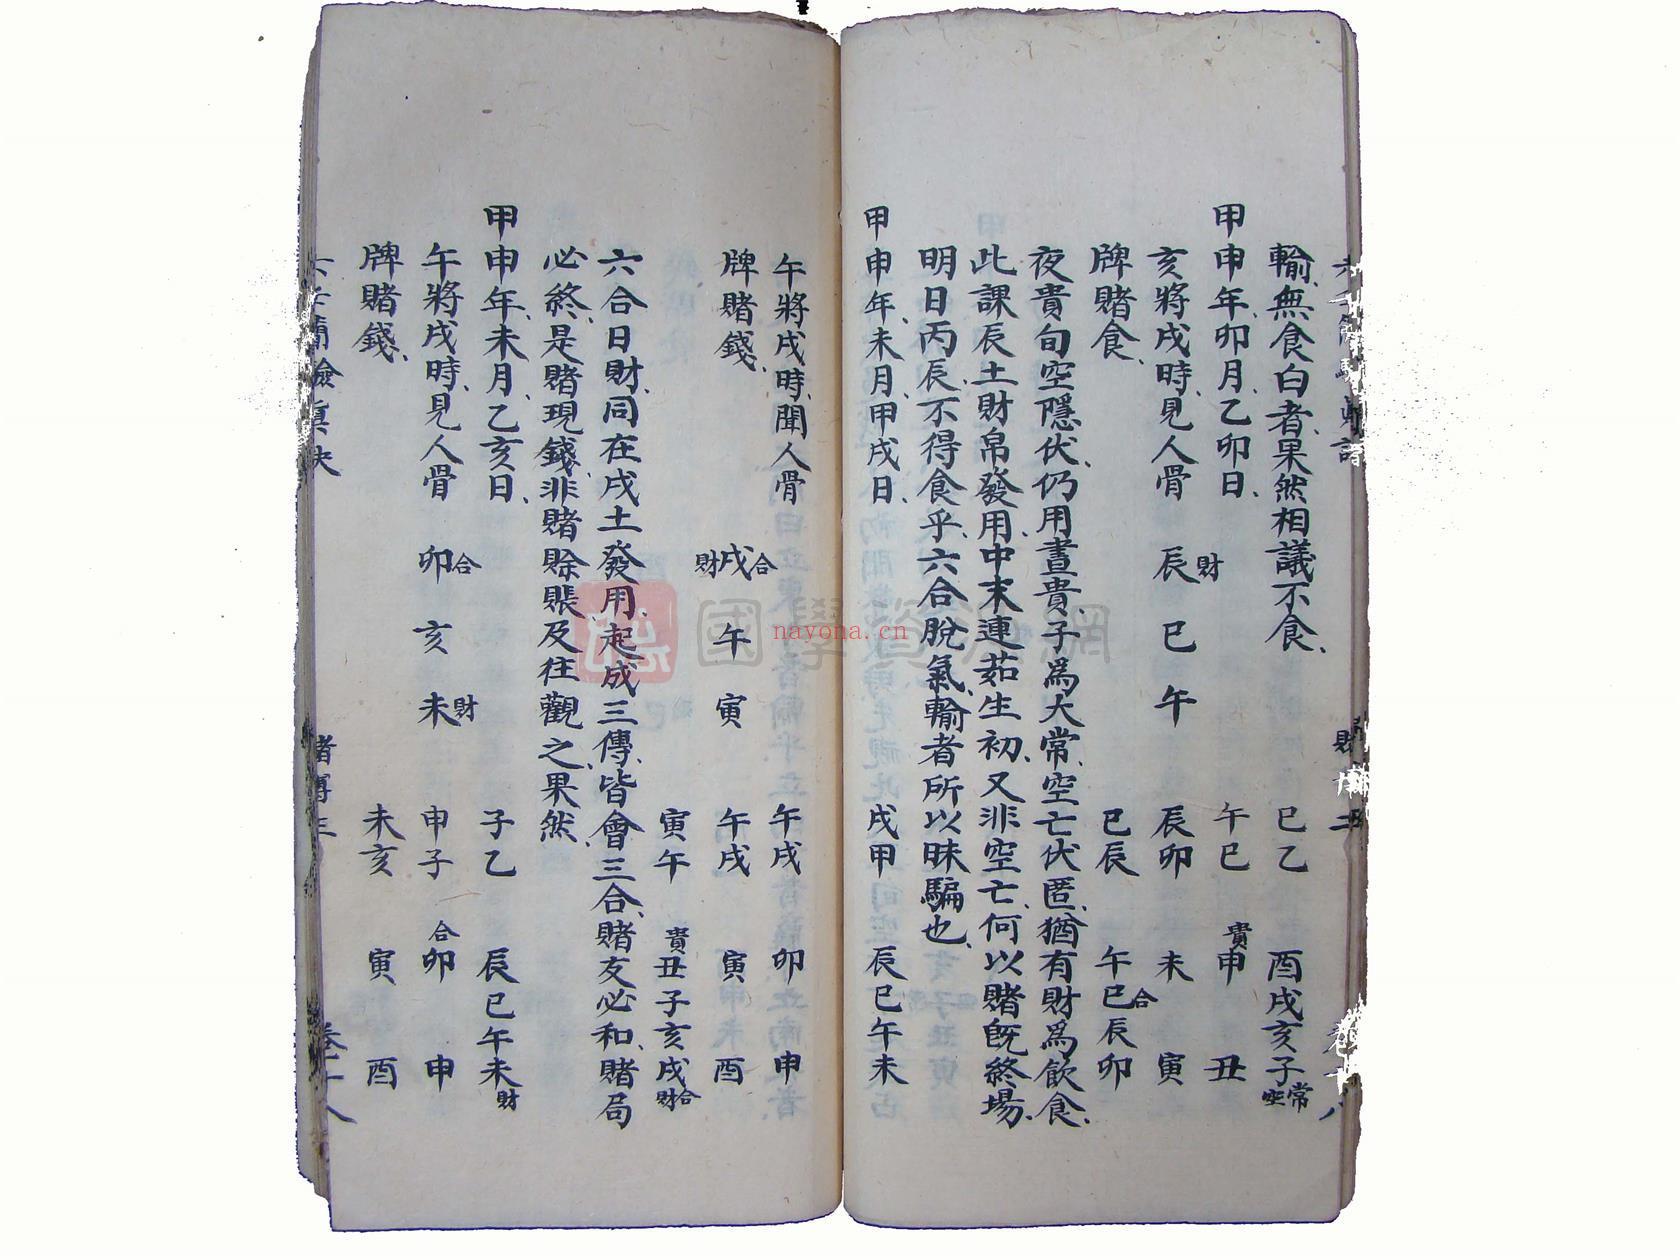 輸、無食白者、果然相議不食、
巳乙 酉戌亥子常空
甲申年、卯月、乙卯日、
午巳 貴申 丑
亥將戌時、見人骨 辰財 巳 午
辰卯 未 寅
牌賭食、
巳辰 午巳合辰卯
夜貴旬空隱伏、仍用晝貴、子為大常、空亡伏匿、猶有財為飲食、
此課辰土財帛發用、中末連茹生初、又非空亡、何以賭既終場、
明日丙辰、不得食乎、六合脫氣、輸者所以昧騙也、
甲申年、未月、甲戌日、
戌甲 辰巳午未
午將戌時、聞人骨 財戌合 午 寅
午戌 卯 申
牌賭錢、
午戌 寅 酉
寅午 貴丑子亥戌財合
六合日財、同在戌土發用、起成三傳、皆會三合、賭友必和、賭局
必終、是賭現錢、非賭賒賬、及往觀之、果然、
甲申年、未月、乙亥日、
子乙 辰巳午未財
午將戌時、見人骨 卯合 亥 未財
申子 合卯 申
牌賭錢、
未亥 寅 酉
國學資源網
nayona.cn